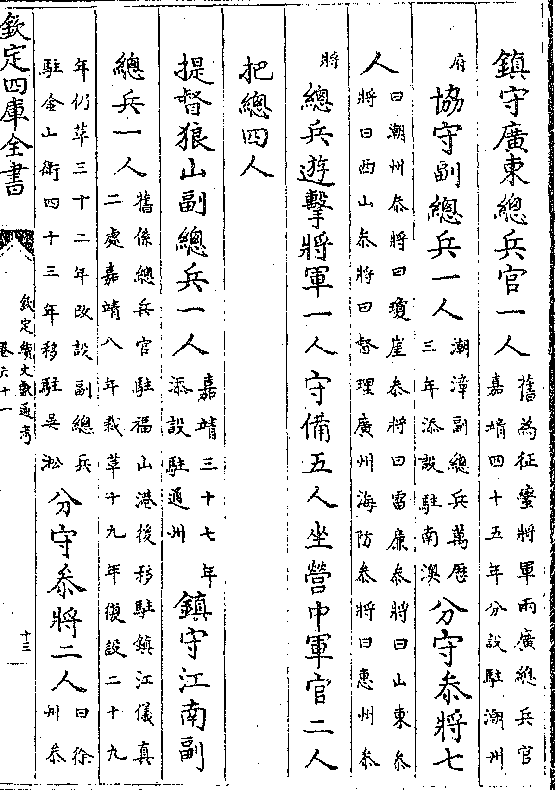 鎮守廣東總兵官一人 舊為征蠻將軍兩廣總兵官嘉靖四十五年分設駐潮州
府 協守副總兵一人 潮漳副總兵萬厯三年添設駐南澳 分守叅將七
人 曰潮州叅將曰瓊崖叅將曰雷廉叅將曰山東叅將曰西山叅將曰督理廣州海防叅將曰惠州叅
將 總兵遊擊將軍一人守備五人坐營中軍官二人
把總四人
提督狼山副總兵一人 嘉靖三十七年添設駐通州 鎮守江南副
總兵一人 舊係總兵官駐福山港後移駐鎮江儀真二處嘉靖八年裁革十九年復設二十九
年仍革三十二年改設副總兵駐金山衛四十三年移駐吳淞 分守叅將二人 曰徐州叅
欽定四庫全書
欽定續文獻通考
卷六十一
十三